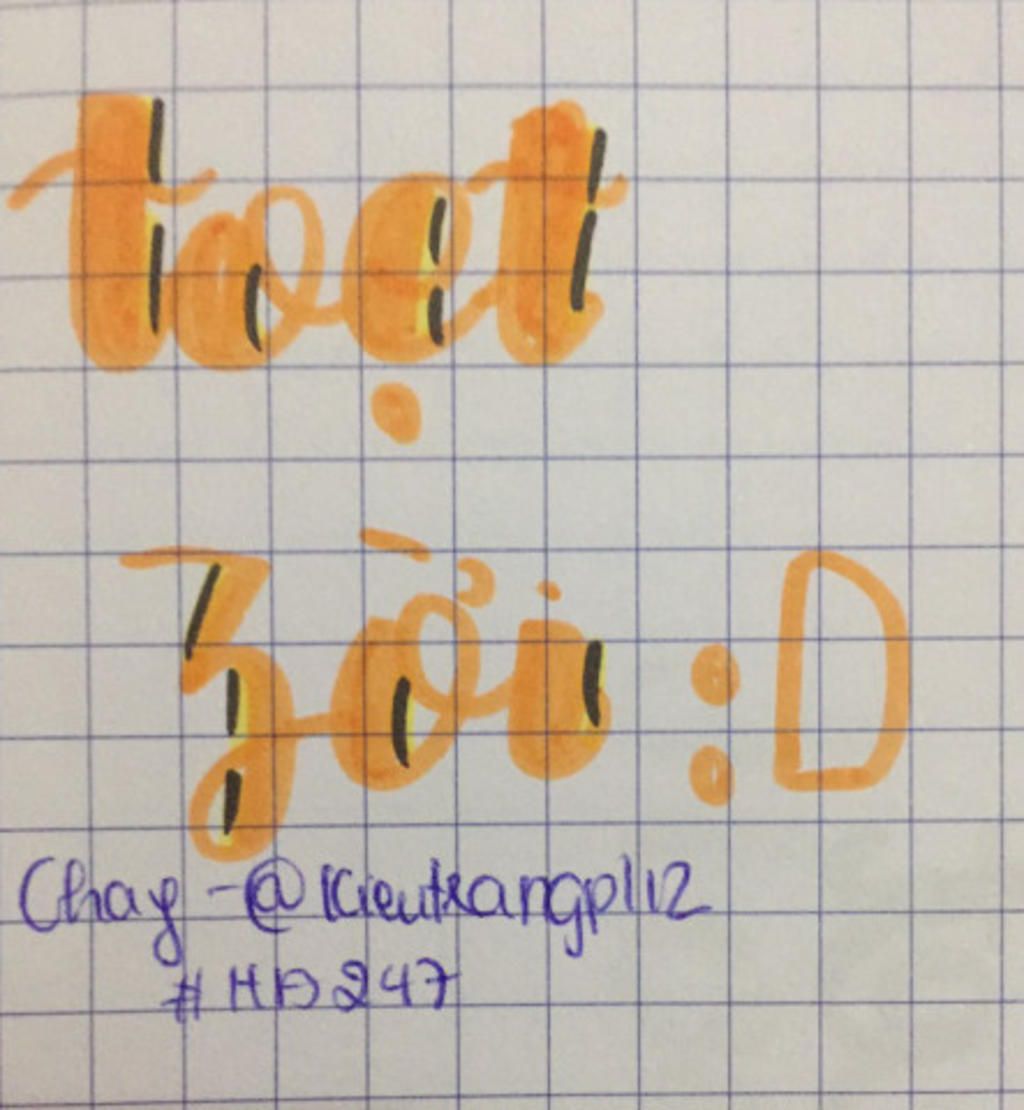 toẹt
zời :D
Chay - @kieutrangpl12
#HD247